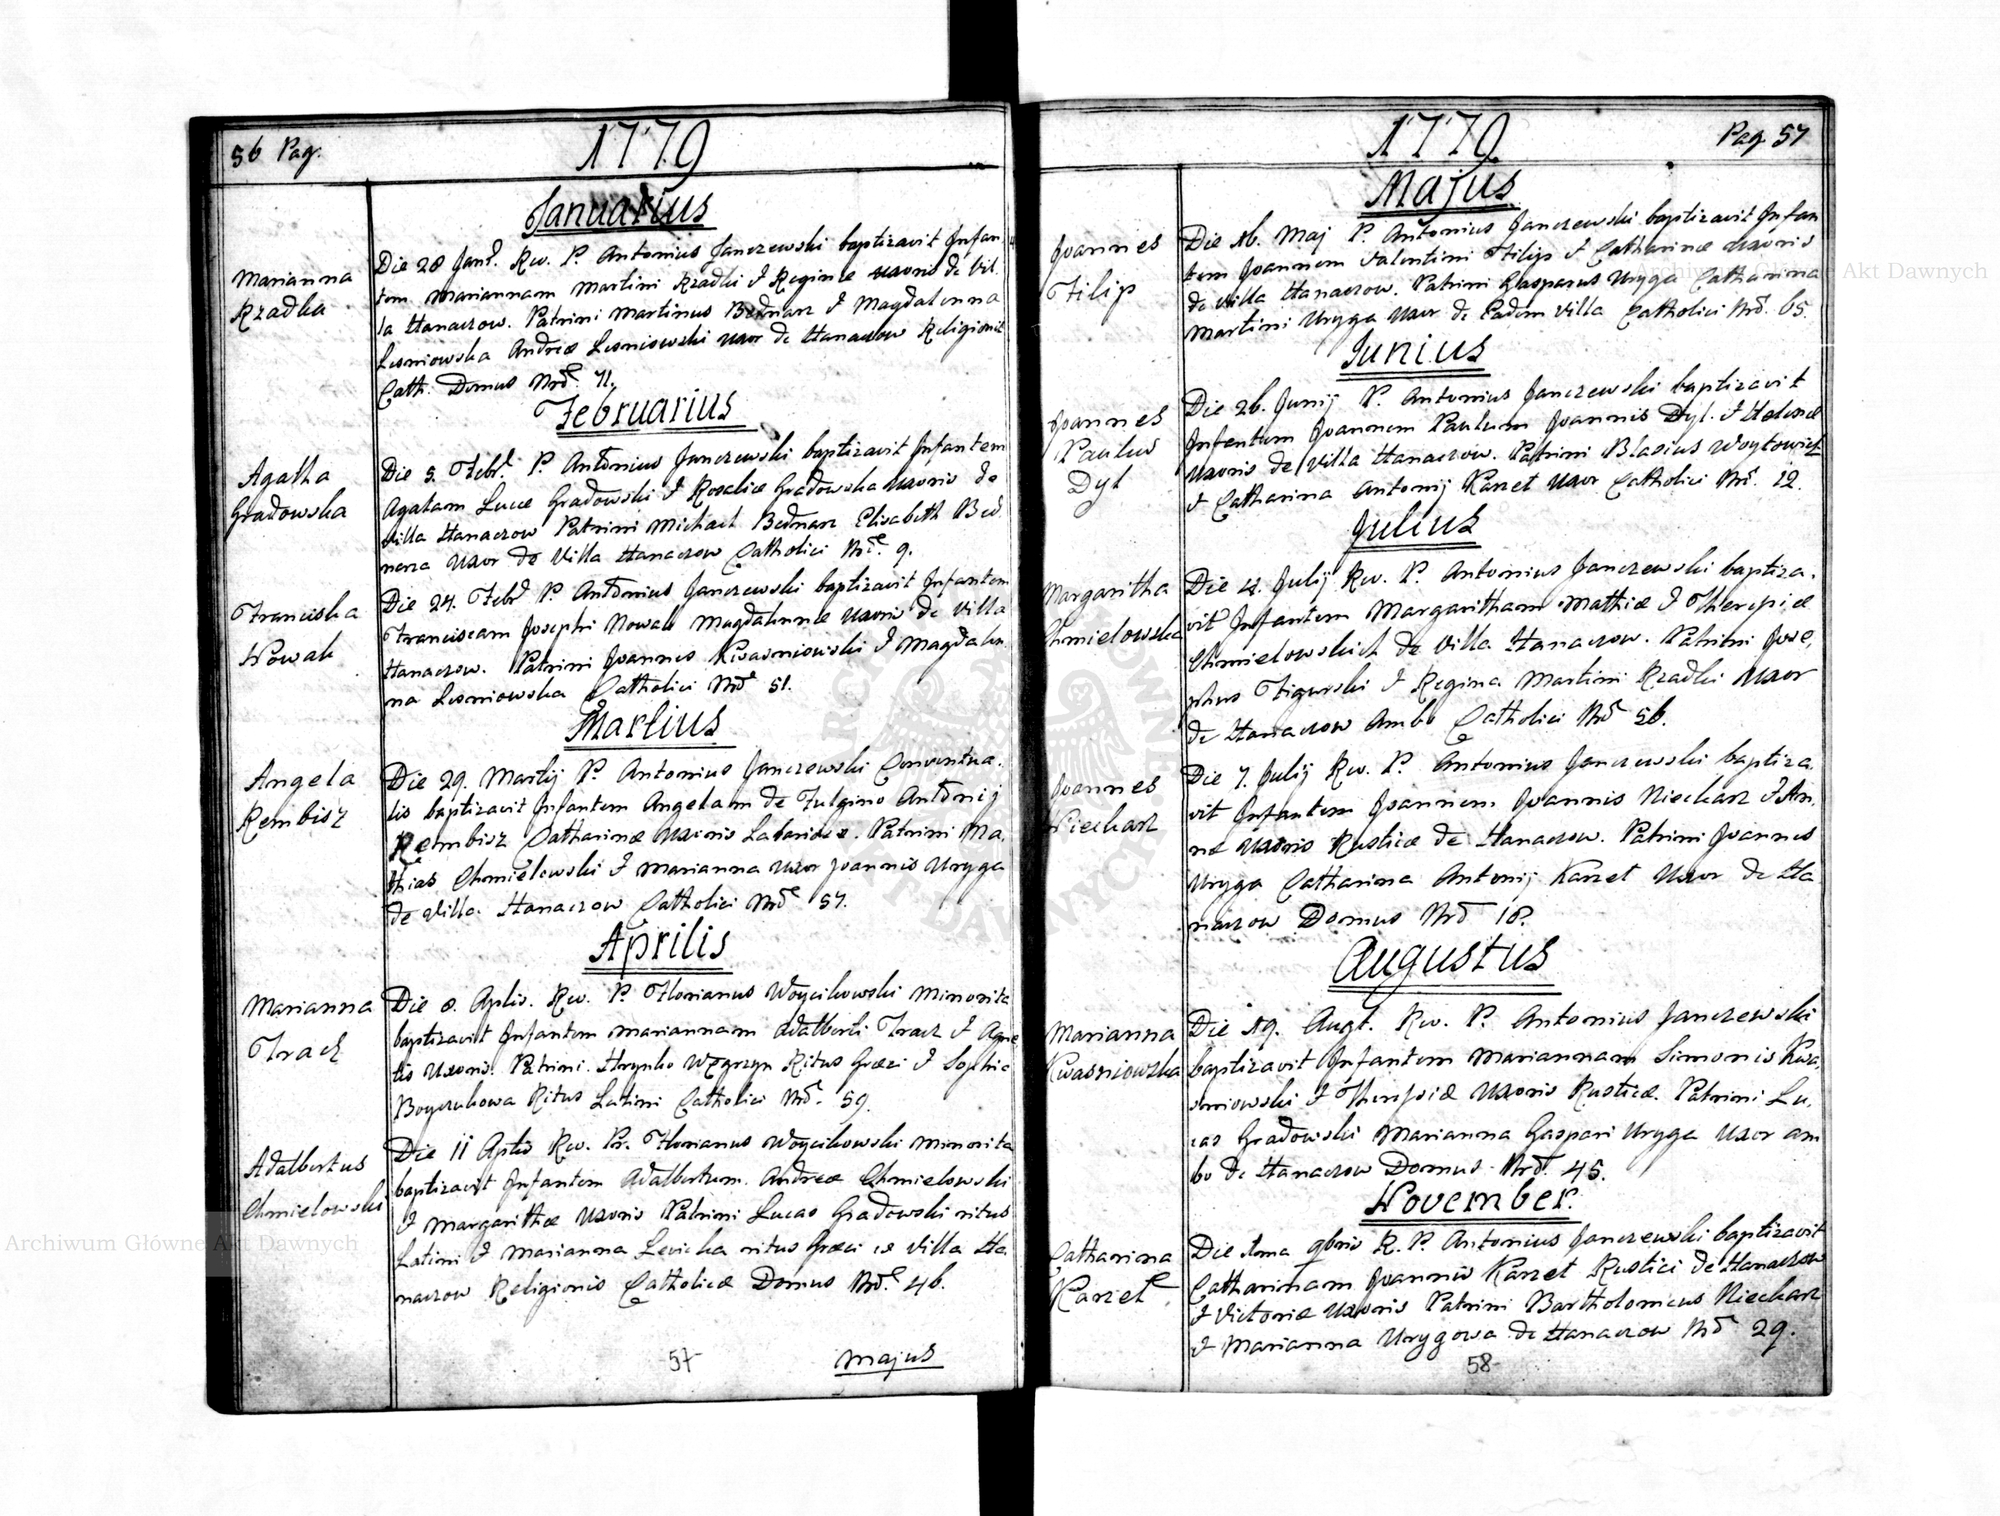 56 Pag.
1779
Januarius
Marianna
Rzadka
Die 28 Janr. Rev. P. Antonius Janczewski baptizavit Infan
tem Mariannam Martini Rzadki & Reginæ uxoris de Vil
la Hanaczow. Patrini Martinus Bednarz & Magdalenna
Lesniowska Andreæ Lesniowski uxor de Hanaczow Religionis
Cath. Domus Nrõ 71.
Februarius
Agatha
Gradowska
Die 5. Febr. P. Antonius Janczewski baptizavit Infantem
Agatam Lucæ Gradowski & Rosaliæ Gradowska uxoris de
Villa Hanaczow Patrini Michael Bednarz Elisabeth Bed
narza uxor de Villa Hanaczow Catholici Nrõ. 9.
Franciska
Nowak
Die 24. Febr P. Antonius Janczewski baptizavit Infantem
Franciscam Josephi Nowak Magdalennæ uxoris de Villa
Hanaczow. Patrini Joannes Kwasniowski & Magdalen
na Lesniowska Catholici Nrõ 51.
Martius
Angela
Rembisz
Die 29. Martij P. Antonius Janczewski Conventua.
lis baptizavit Infantem Angelam de Fulgino Antonij
Rembisz Catharinæ Uxoris Patrini Ma.
thias Chmielowski & Marianna uxor Joannis Uryga
de Villa Hanaczow Catholici Nrõ 57.
Aprilis
Marianna
Tracz
Die 8. Aplis. Rev. P. Florianus Woycikowski Minorita
baptizavit Infantem Mariannam Adalberti Tracz & Agne
tis Uxoris. Patrini Hrypko Węgrzyn Ritus Græci & Sophia
Boyczukowa Ritus Latini Catholici Nrõ. 59.
Adalbertus
Chmielowski
Die 11 Aplis Rev. Pr. Florianus Woycikowski Minorita
baptizavit Infantem Adalbertum. Andreæ Chmielowski
& Margarithæ Uxoris Patrini Lucas Gradowski ritus
Latini & Marianna Levicka ritus Græci de Villa Ha
naczow Religionis Catholicæ Domus Nrõ. 46.
57
Majus
1779
Pag. 57
Majus
Joannes
Filip
Die 16. Maj P. Antonius Janczewski baptizavit Infan
tem Joannem Valentini Filip & Catharinæ uxoris
de Villa Hanaczow. Patrini Gasparus Uryga Catharina
Martini Uryga Uxor de Eadem Villa Catholici Nrõ. 65.
Junius
Joannes
Paulus
Dyl
Die 26. Junij P. Antonius Janczewski baptizavit
Infantem Joannem Paulum Joannis Dyl. & Helenæ
uxoris de Villa Hanaczow. Patrini Blasius Woytowicz
& Catharina Antonij Karzet Uxor Catholici Nrõ. 12.
Julius
Margaritha
Chmielowska
Die 4. Julij Rev. P. Antonius Janczewski baptiza.
vit Infantem Margaritham Mathiæ & Theresiæ
Chmielowskich de Villa Hanaczow. Patrini Jose,
phus Figurski & Regina Martini Rzadki Uxor
de Hanaczow Ambo Catholici Nrõ 56.
Joannes
Niecharz
Die 7. Julij Rev. P. Antonius Janczewski baptiza
vit Infantem Joannem Joannis Niecharz & An.
næ uxoris Rusticæ de Hanaczow. Patrini Joannes
Uryga Catharina Antonij Karzet Uxor de Ha
naczow Domus Nrõ 18.
Augustus
Marianna
Kwasniowska
Die 19. Augt. Rev. P. Antonius Janczewski
baptizavit Infantem Mariannam Simonis Kwa,
sniowski & Theresiæ uxoris Rusticæ. Patrini Lu,
cas Gradowski Marianna Gaspari Uryga uxor am
bo de Hanaczow Domus Nrõ. 45.
November.
Catharina
Karzet
Die 1ma 9bris R. P. Antonius Janczewski baptizavit
Catharinam Joannis Karzet Rustici de Hanaczow
& Victoriæ uxoris Patrini Bartholomeus Niecharz
& Marianna Urygowa de Hanaczow Nrõ 29.
58
Archiwum Główne Akt Dawnych
Archiwum Główne Akt Dawnych